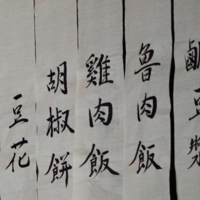 鹹豆漿
魯肉飯
雞肉飯
胡椒餅
豆花